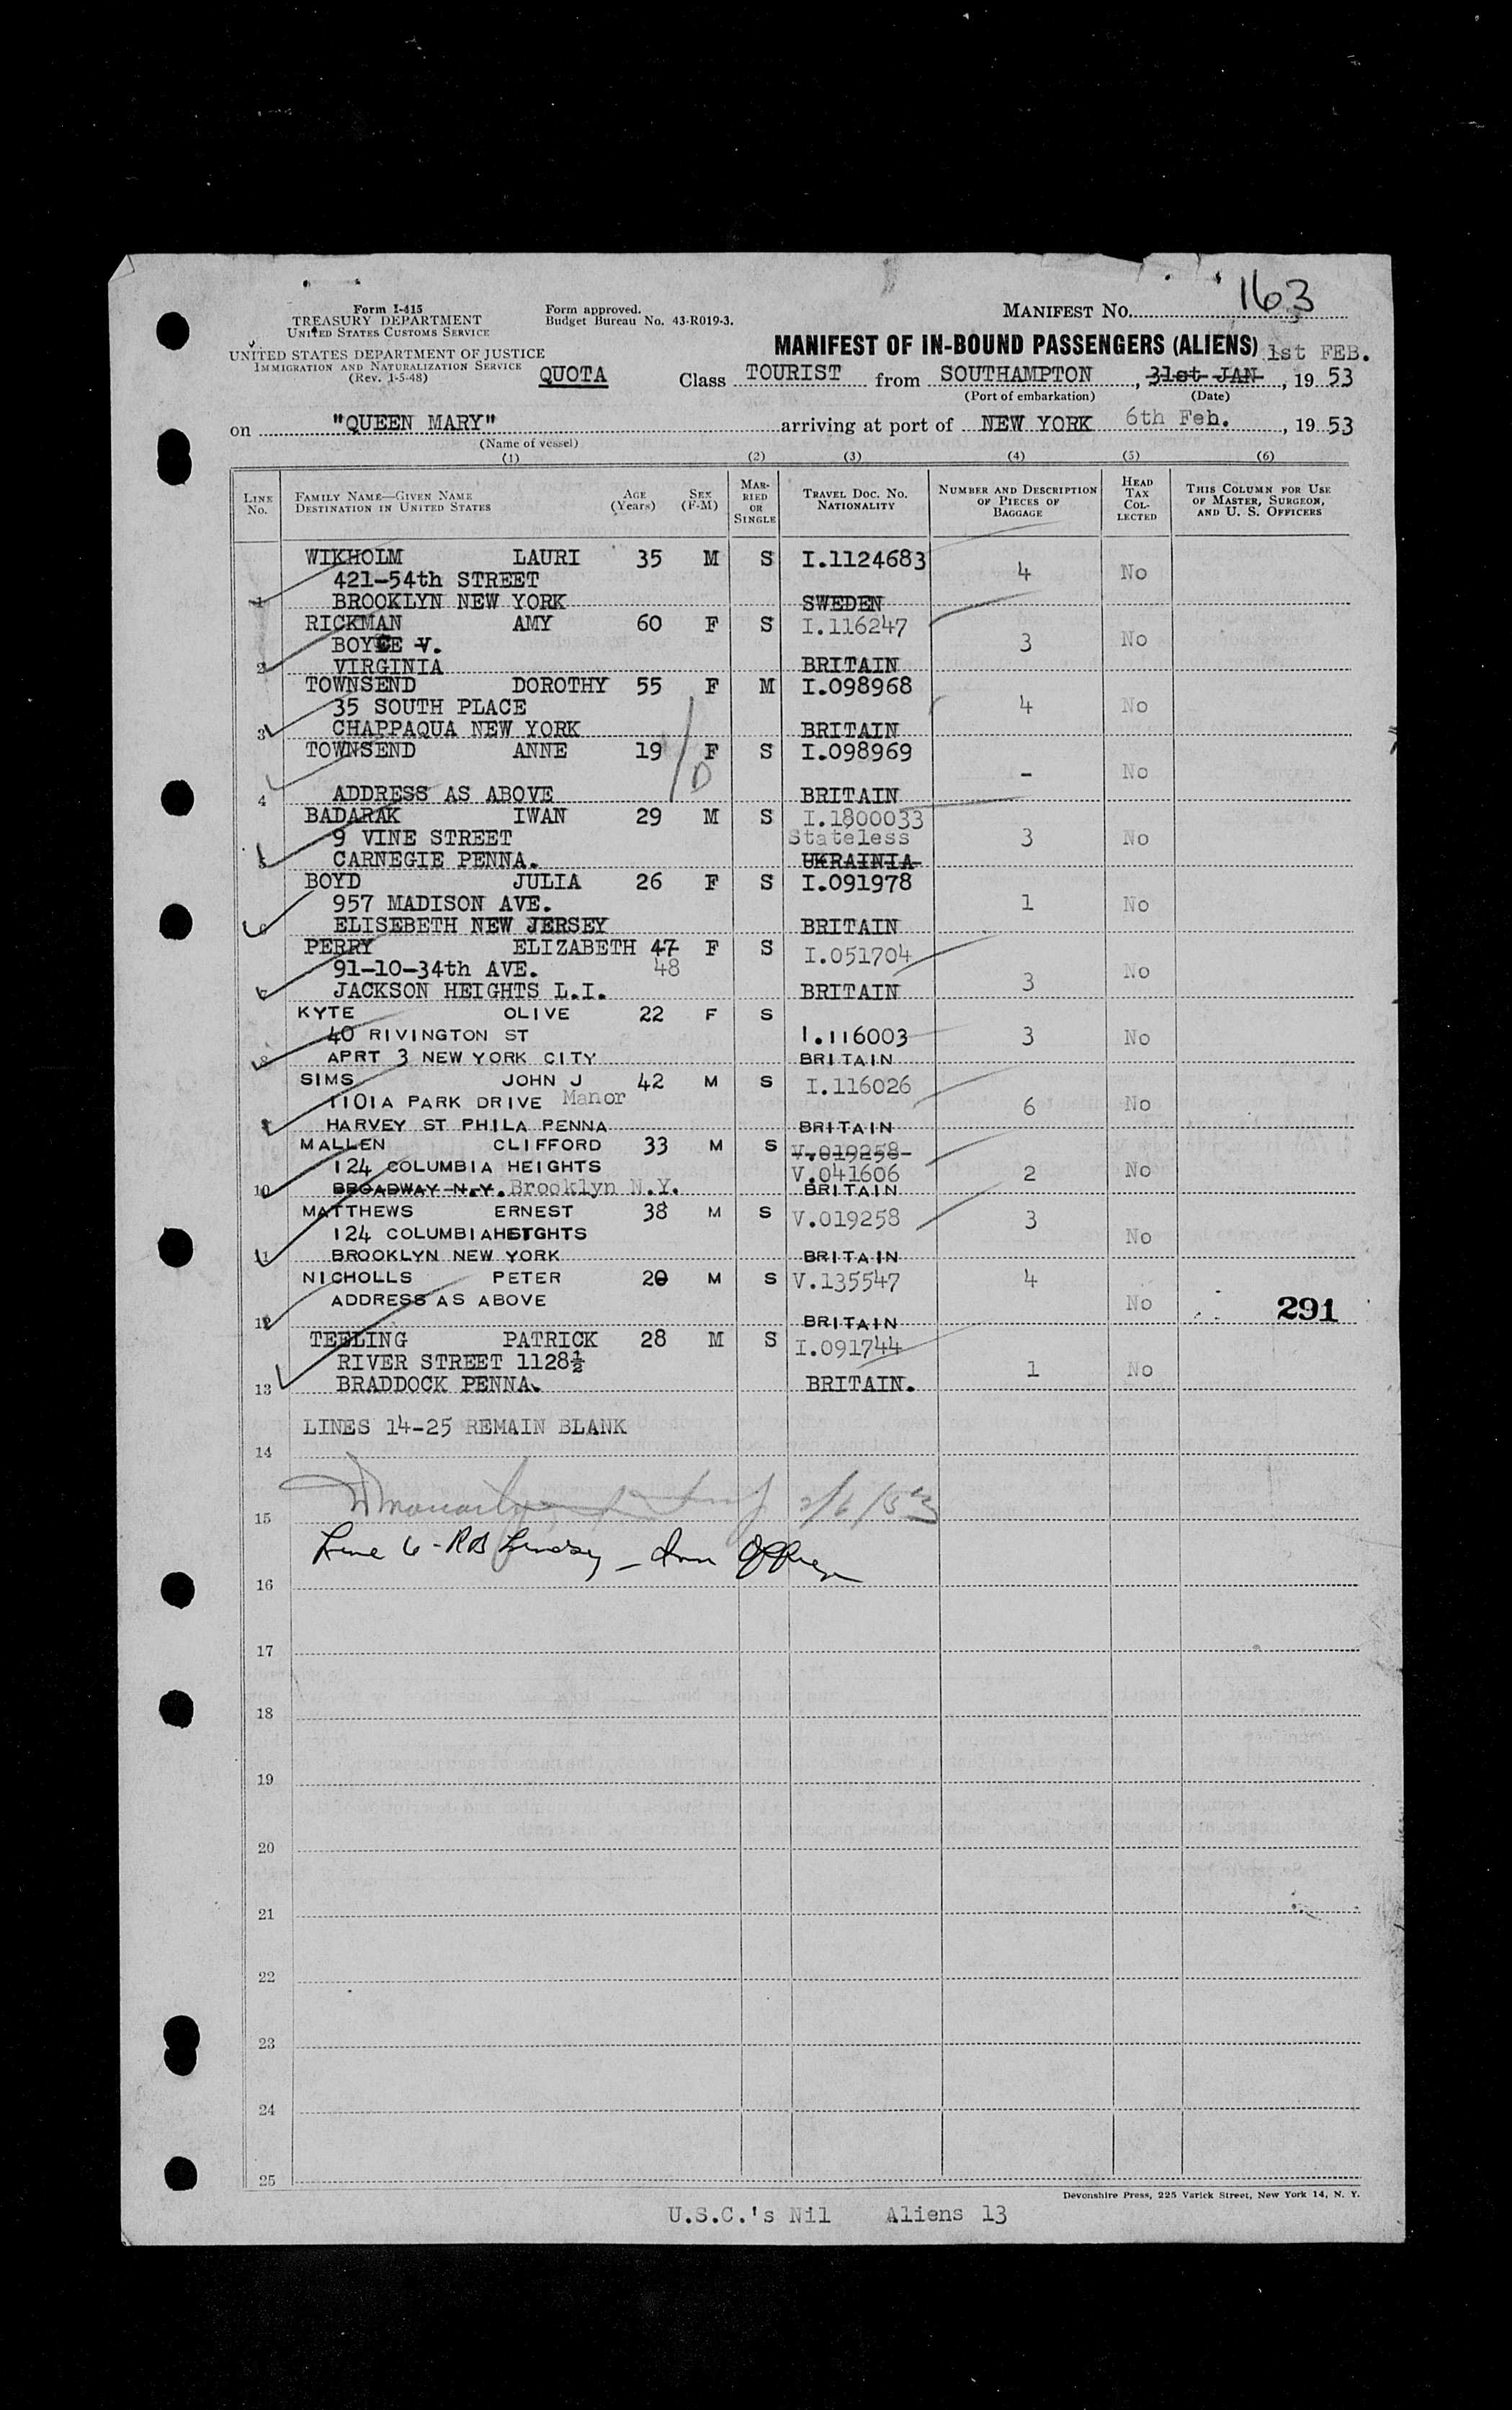 163
Form I-415
TREASURY DEPARTMENT
UNITED STATES CUSTOMS SERVICE
Form approved.
Budget Bureau No. 43-R019-3.
MANIFEST NO.
UNITED STATES DEPARTMENT OF JUSTICE
IMMIGRATION AND NATURALIZATION SERVICE
(Rev. 1-5-48)
MANIFEST OF IN-BOUND PASSENGERS (ALIENS) 1st FEB.
QUOTA Class TOURIST from SOUTHAMPTON, 31st JAN, 19 53
(Port of embarkation) (Date)
on "QUEEN MARY" arriving at port of NEW YORK 6th Feb., 19 53
(Name of vessel)
(1) (2) (3) (4) (5) (6)
LINE No. FAMILY NAME—GIVEN NAME DESTINATION IN UNITED STATES AGE (Years) SEX (F-M) MARRIED OR SINGLE TRAVEL DOC. NO. NATIONALITY NUMBER AND DESCRIPTION OF PIECES OF BAGGAGE HEAD TAX COLLECTED THIS COLUMN FOR USE OF MASTER, SURGEON, AND U. S. OFFICERS
WIKHOLM LAURI 35 M S I.1124683
421-54th STREET 4 No
1 BROOKLYN NEW YORK SWEDEN
RICKMAN AMY 60 F S I.116247
BOYCE V. 3 No
2 VIRGINIA BRITAIN
TOWNSEND DOROTHY 55 F M I.098968
35 SOUTH PLACE 4 No
3 CHAPPAQUA NEW YORK BRITAIN
TOWNSEND ANNE 19 F S I.098969
- No
4 ADDRESS AS ABOVE BRITAIN
BADARAK IWAN 29 M S I.1800033
9 VINE STREET Stateless 3 No
5 CARNEGIE PENNA. UKRAINIA
BOYD JULIA 26 F S I.091978
957 MADISON AVE. 1 No
6 ELISEBETH NEW JERSEY BRITAIN
PERRY ELIZABETH 47 F S I.051704
91-10-34th AVE. 48 3 No
7 JACKSON HEIGHTS L.I. BRITAIN
KYTE OLIVE 22 F S
40 RIVINGTON ST I.116003 3 No
8 APRT 3 NEW YORK CITY BRITAIN
SIMS JOHN J 42 M S I.116026
1101A PARK DRIVE Manor 6 No
9 HARVEY ST PHILA PENNA BRITAIN
MALLEN CLIFFORD 33 M S V.019258
124 COLUMBIA HEIGHTS V.041606 2 No
10 BROADWAY N.Y. Brooklyn N.Y. BRITAIN
MATTHEWS ERNEST 38 M S V.019258 3
124 COLUMBIA HEIGHTS No
11 BROOKLYN NEW YORK BRITAIN
NICHOLLS PETER 20 M S V.135547 4
ADDRESS AS ABOVE No 291
12 BRITAIN
TEELING PATRICK 28 M S I.091744
RIVER STREET 1128½ 1 No
13 BRADDOCK PENNA. BRITAIN.
LINES 14-25 REMAIN BLANK
14
2/6/53
15
Line 6 - RB Lindsey - Imm Officer
16
17
18
19
20
21
22
23
24
25
Devonshire Press, 225 Varick Street, New York 14, N. Y.
U.S.C.'s Nil Aliens 13